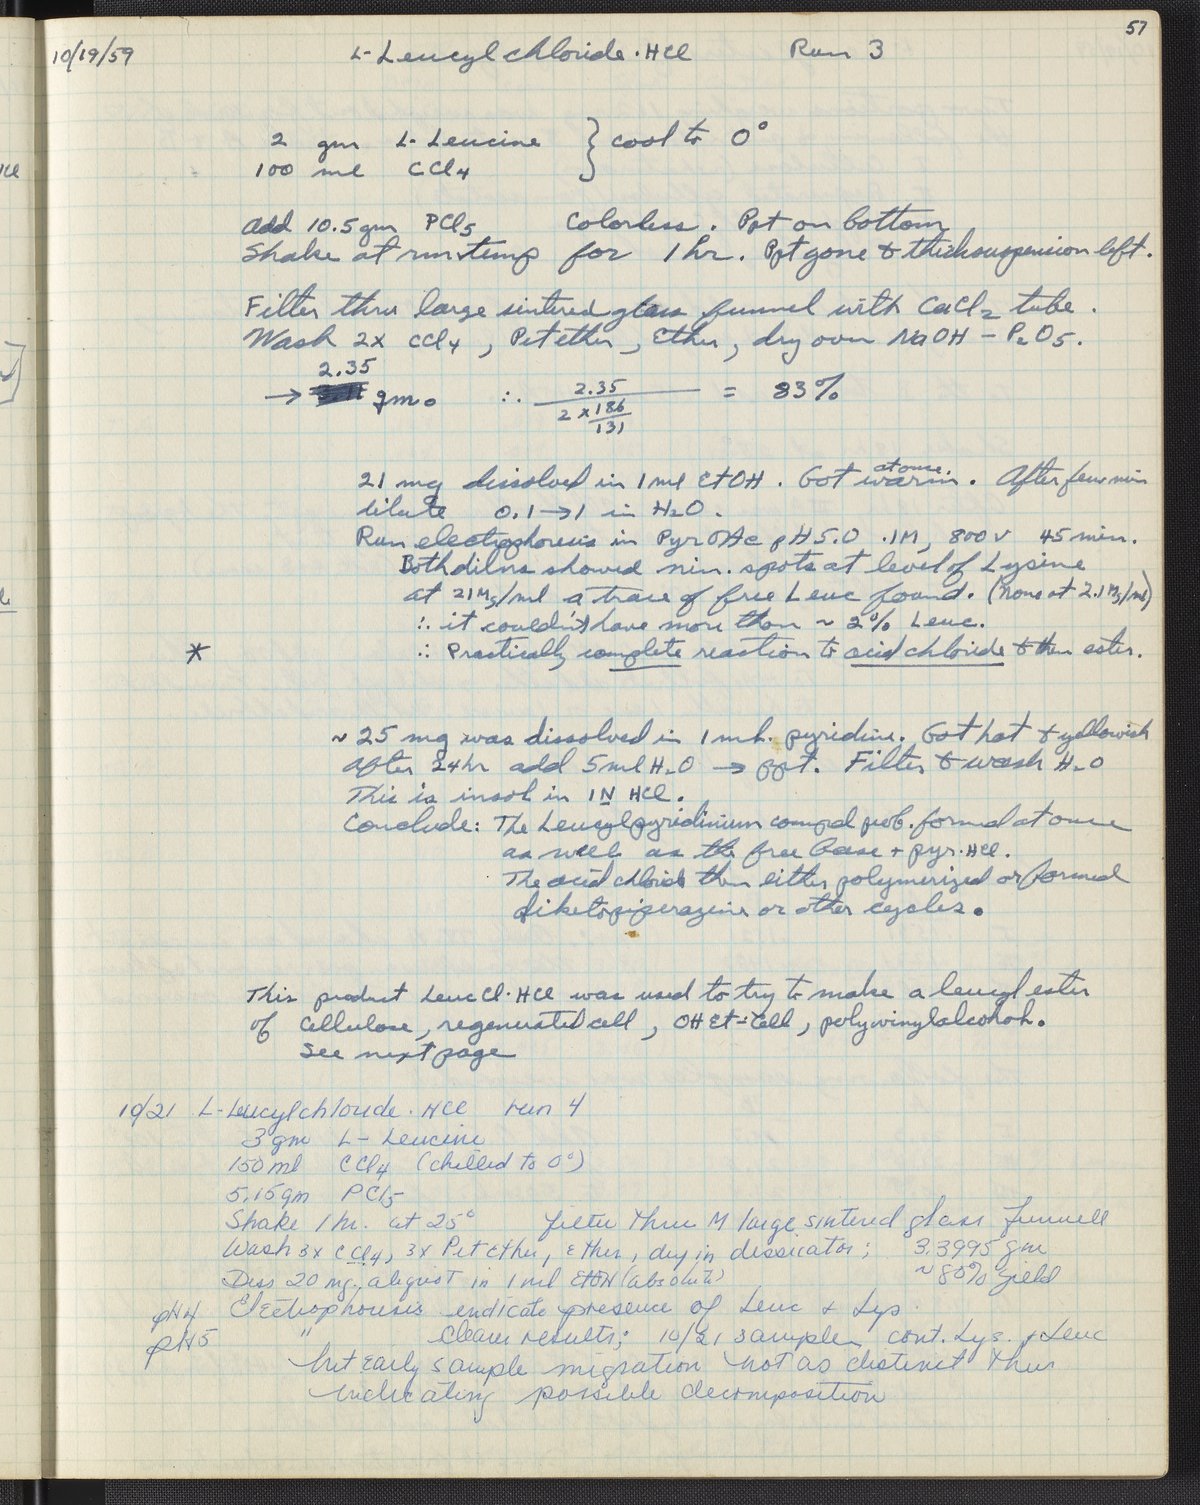 57
10/19/59 L-Leucylchloride·HCl Run 3
2 gm L-Leucine } cool to 0°
100 ml CCl4
add 10.5 gm PCl5 Colorless. Ppt on bottom
Shake at rm temp for 1 hr. Ppt gone & thick suspension left.
Filter thru large sintered glass funnel with CaCl2 tube.
Wash 2x CCl4, Pet ether, Ether, dry over NaOH - P2O5.
2.35
→ gm. ∴ 2.35 / 2 x 186/131 = 83%
21 mg dissolved in 1 ml EtOH. Got warm at once. After few min
dilute 0.1→1 in H2O.
Run electrophoresis in Pyr OAc pH 5.0 .1M, 800 v 45 min.
Both dilns showed nin. spots at level of Lysine
at 21 Mg/ml a trace of free Leuc found. (None at 2.1 Mg/ml)
∴ it couldn't have more than ~ 2% Leuc.
* ∴ Practically complete reaction to acid chloride & then ester.
~ 25 mg was dissolved in 1 ml. pyridine. Got hot & yellowish
After 24 hr add 5 ml H2O → ppt. Filter & wash H2O
This is insol in 1N HCl.
Conclude: The Leucylpyridinium compd prob. formed at once
as well as the free base + pyr·HCl.
The acid chloride then either polymerized or formed
diketopiperazine or other cycles.
This product Leuc Cl·HCl was used to try to make a leucyl ester
of Cellulose, regenerated cell, OH Et-Cell, polyvinylalcohol.
See next page
10/21 L-Leucylchloride·HCl run 4
3 gm L-Leucine
150 ml CCl4 (chilled to 0°)
5.15 gm PCl5
Shake 1 hr. at 25° filter thru M large sintered glass funnell
Wash 3x CCl4, 3x Pet Ether, ether, dry in dessicator; 3.3995 gm
~80% yield
Diss 20 mg. aliquot in 1 ml EtOH (absolute)
pH4 Electrophoresis indicate presence of Leuc & Lys.
pH5 " Clearer results; 10/21 sample cont. Lys. & Leuc
but early sample migration not as distinct thus
indicating possible decomposition